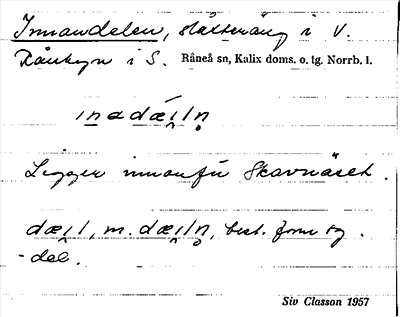 Innandelen, slåtteräng i V.
Rånbyn i S. Råneå sn, Kalix doms. o. tg. Norrb. l.
ınadǽı̯ln̥
Ligger innanför Skavnäset.
dæı̯l, m. dæı̯ln̥, best. form sg.
-del.
Siv Classon 1957